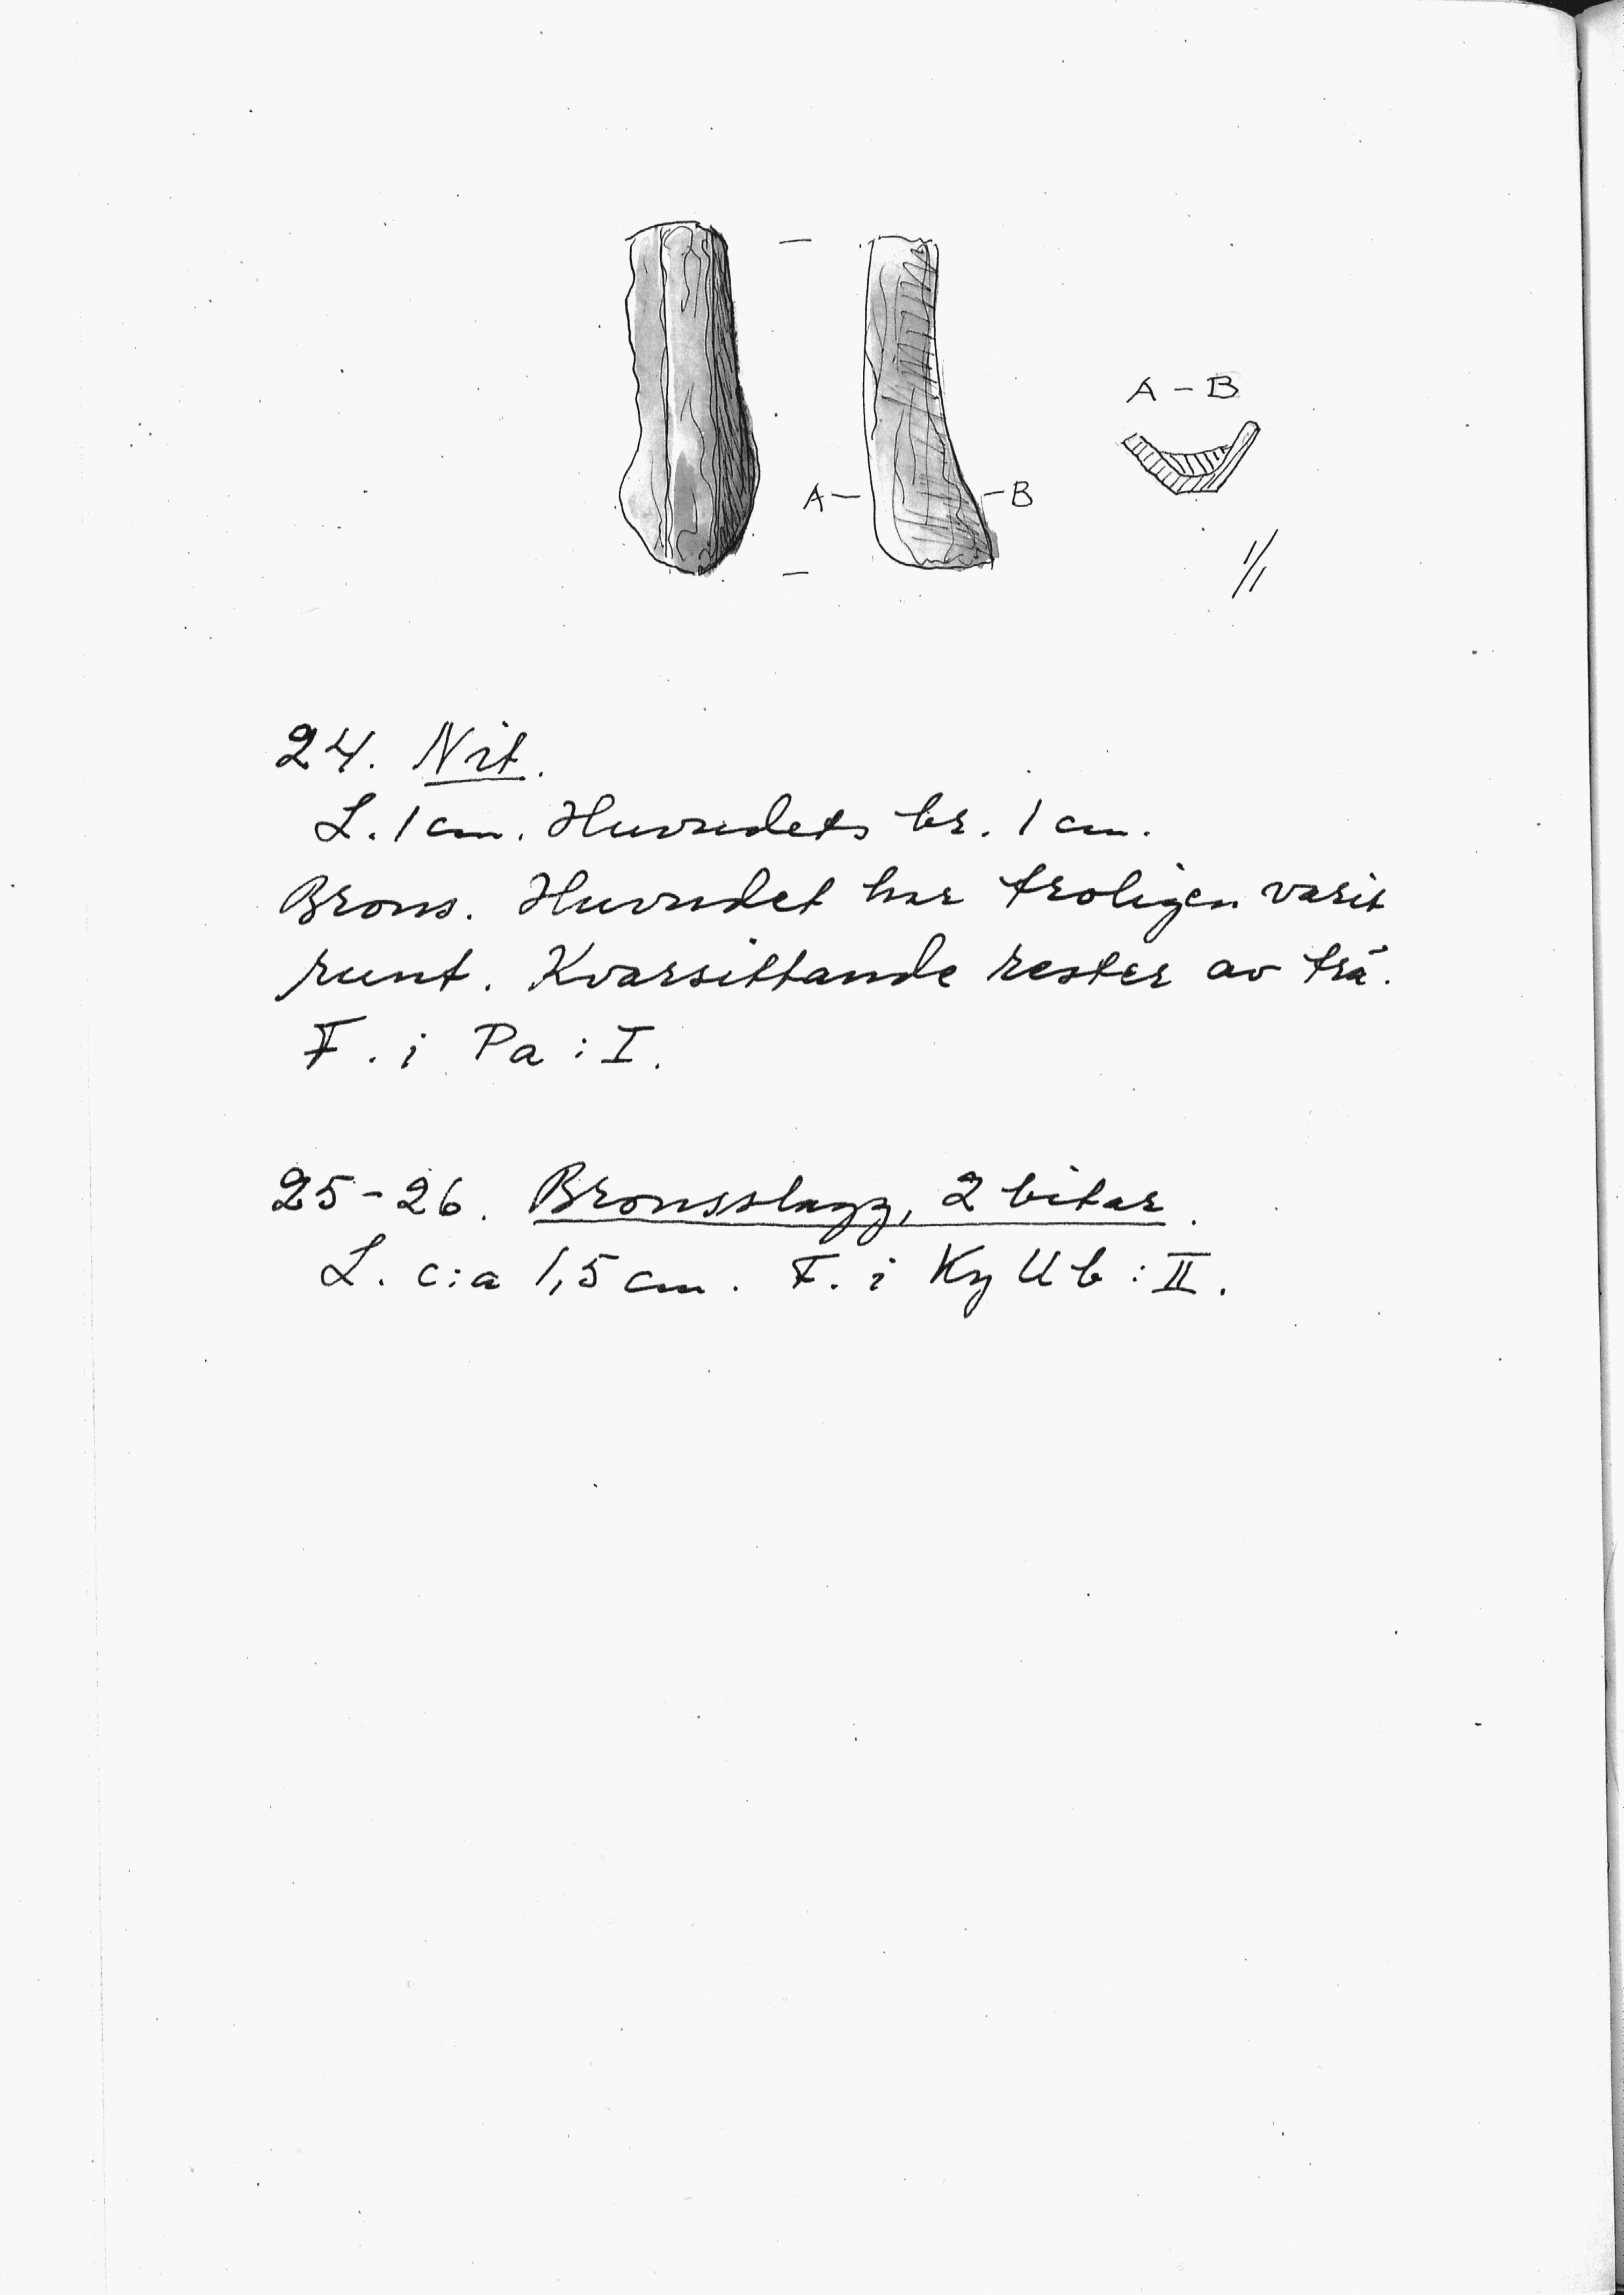 A – B
A – – B
1/1
24. Nit.
L. 1 cm. Huvudets br. 1 cm.
Brons. Huvudet har troligen varit
runt. Kvarsittande rester av trä.
F. i Pa : I.
25-26. Bronsslagg, 2 bitar.
L. c:a 1,5 cm. F. i Ky Ub : II.